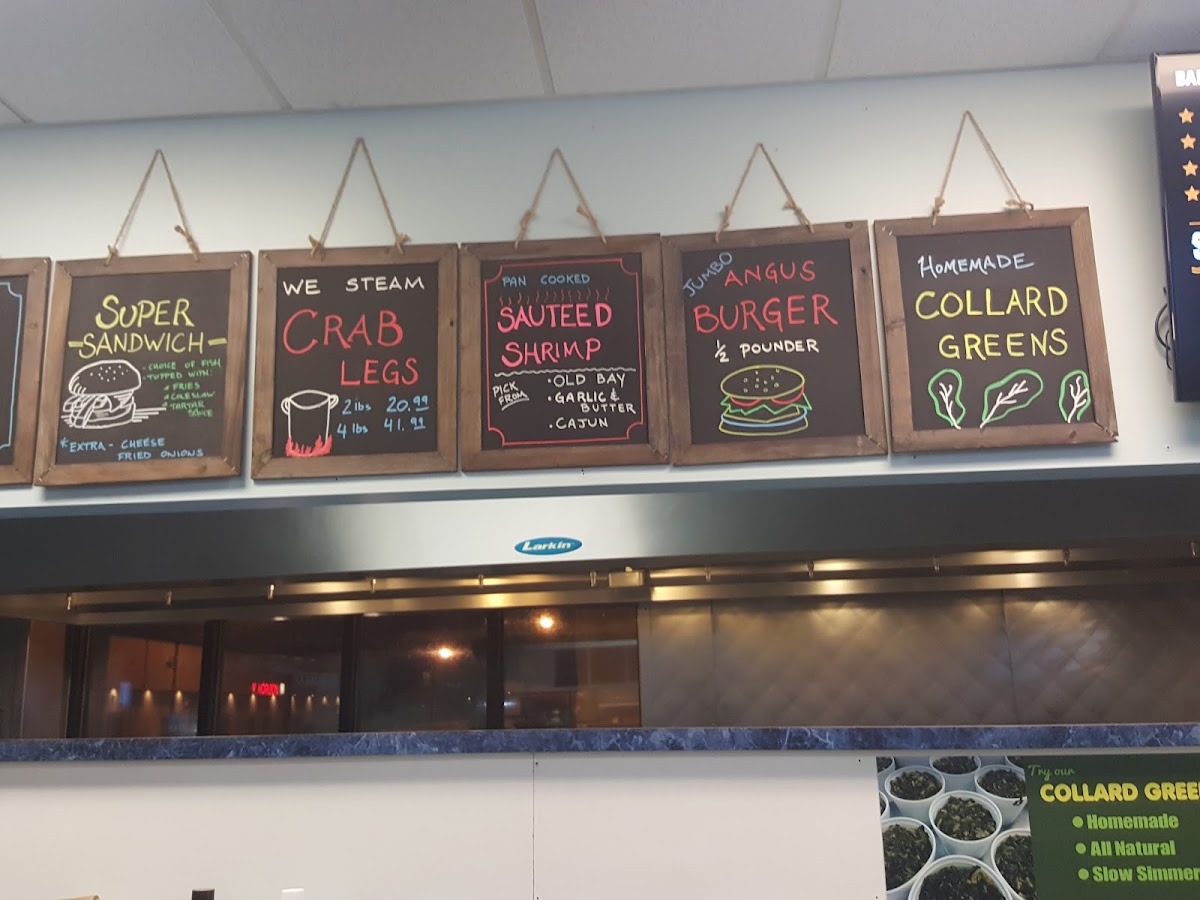 SUPER
SANDWICH
- CHOICE OF FISH
- TOPPED WITH:
FRIES
COLESLAW
TARTAR
SAUCE
*EXTRA - CHEESE
FRIED ONIONS
WE STEAM
CRAB
LEGS
2 lbs 20.99
4 lbs 41.99
PAN COOKED
SAUTEED
SHRIMP
PICK
FROM
• OLD BAY
• GARLIC &
BUTTER
• CAJUN
JUMBO
ANGUS
BURGER
½ POUNDER
HOMEMADE
COLLARD
GREENS
Larkin
Try our
COLLARD GREE
• Homemade
• All Natural
• Slow Simmer